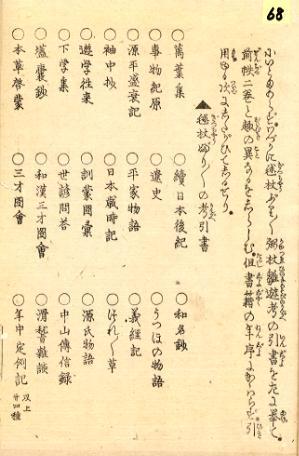 68
毬杖ぶり〱 雛遊考の引書を左に挙て
前帙二巻と趣の異なるをしらしむ。但書籍の年序にかゝはらず引
用る次にしたがひてしるせり。
▲毬杖ぶり〱の考引書
○萬葉集 ○續日本後紀 ○和名鈔
○事物紀原 ○遼史 ○うつほの物語
○源平盛衰記 ○平家物語 ○義經記
○袖中抄 ○日本歳時記 ○つれ〴〵草
○遊学往来 ○訓蒙圖彙 ○源氏物語
○下学集 ○世諺問答 ○中山傳信録
○壒嚢鈔 ○和漢三才圖會 ○滑稽雑談
○本草啓蒙 ○三才圖會 ○年中定例記 以上廿四種